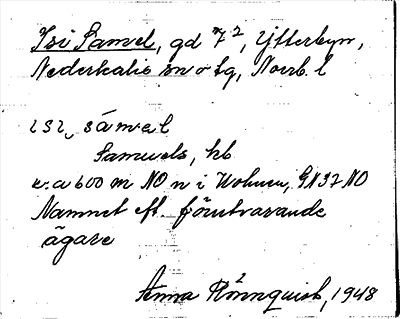 Isi Samel, gd 7², Ytterbyn,
Nederkalix sn o tg, Norrb. l
ɩsɩ, sámel
Samuels, hb
c:a 600 m NO n i Wohnen, GN37 NO
Namnet eft. förutvarande
ägare
Anna Rönnquist, 1948